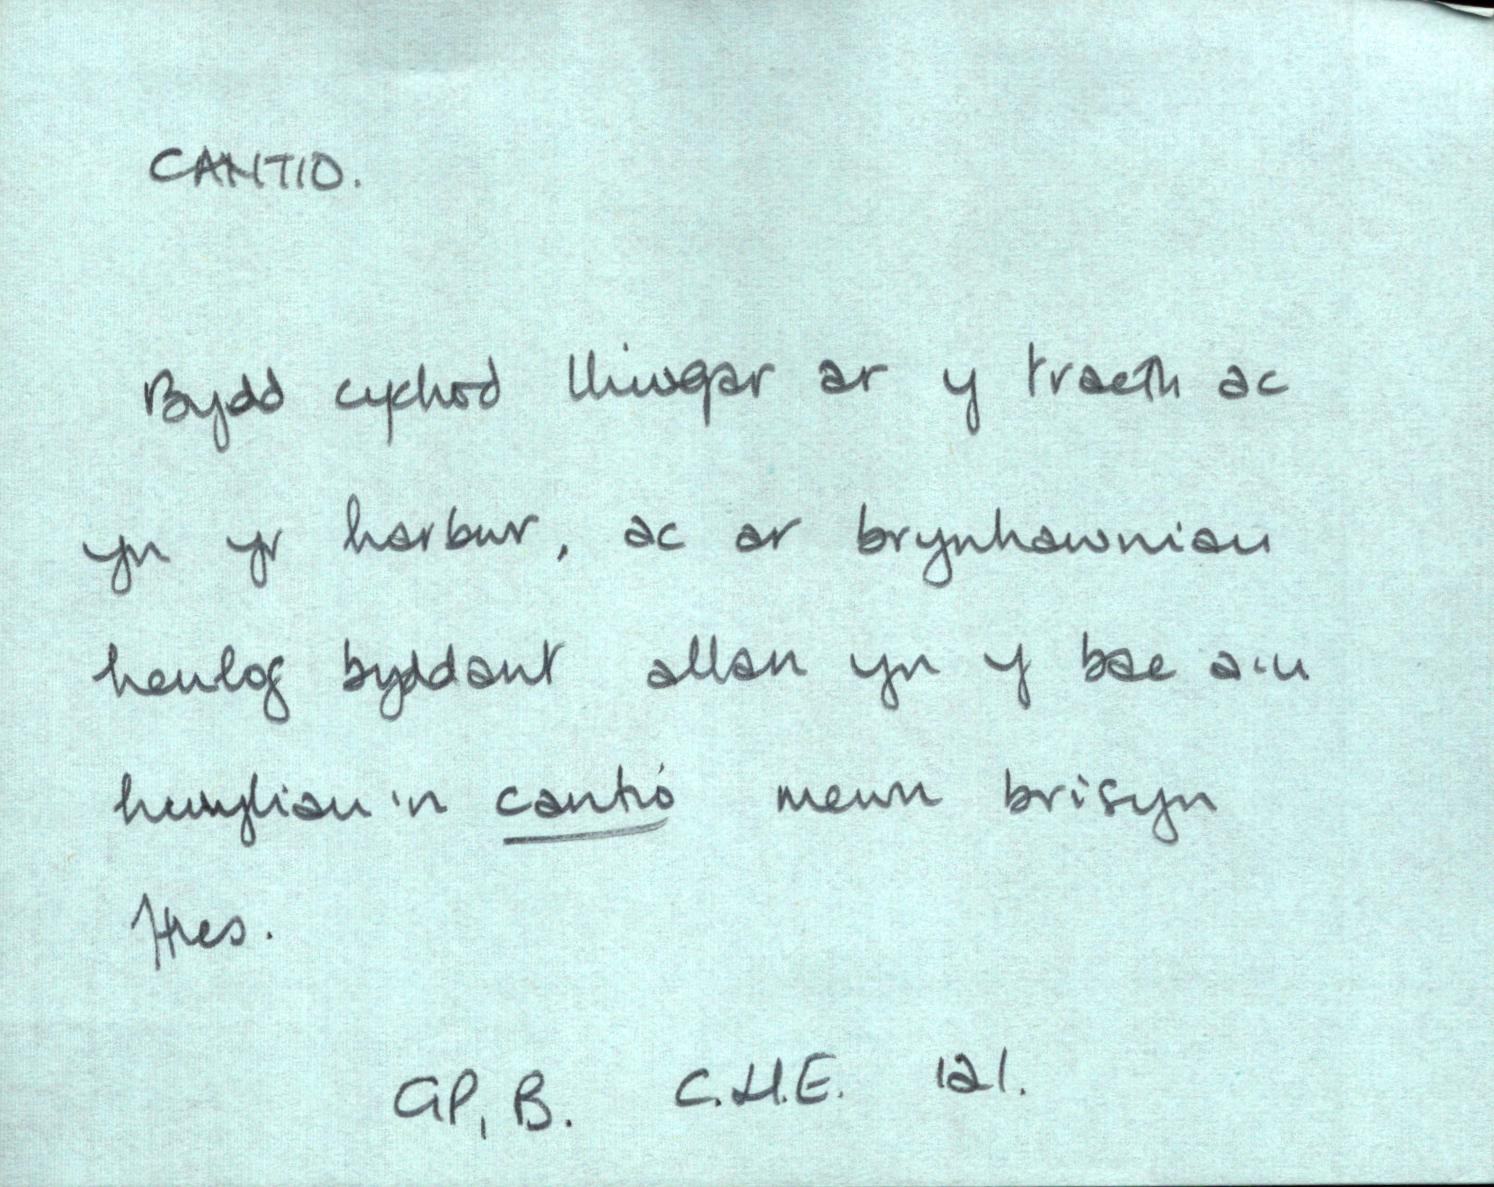 CANTIO.
Bydd cychod lliwgar ar y traeth ac
yn yr harbwr, ac ar brynhawniau
heulog byddant allan yn y bae a'u
hwyliau'n cantio mewn brisyn
ffres.
GP, B. C.H.E. 121.